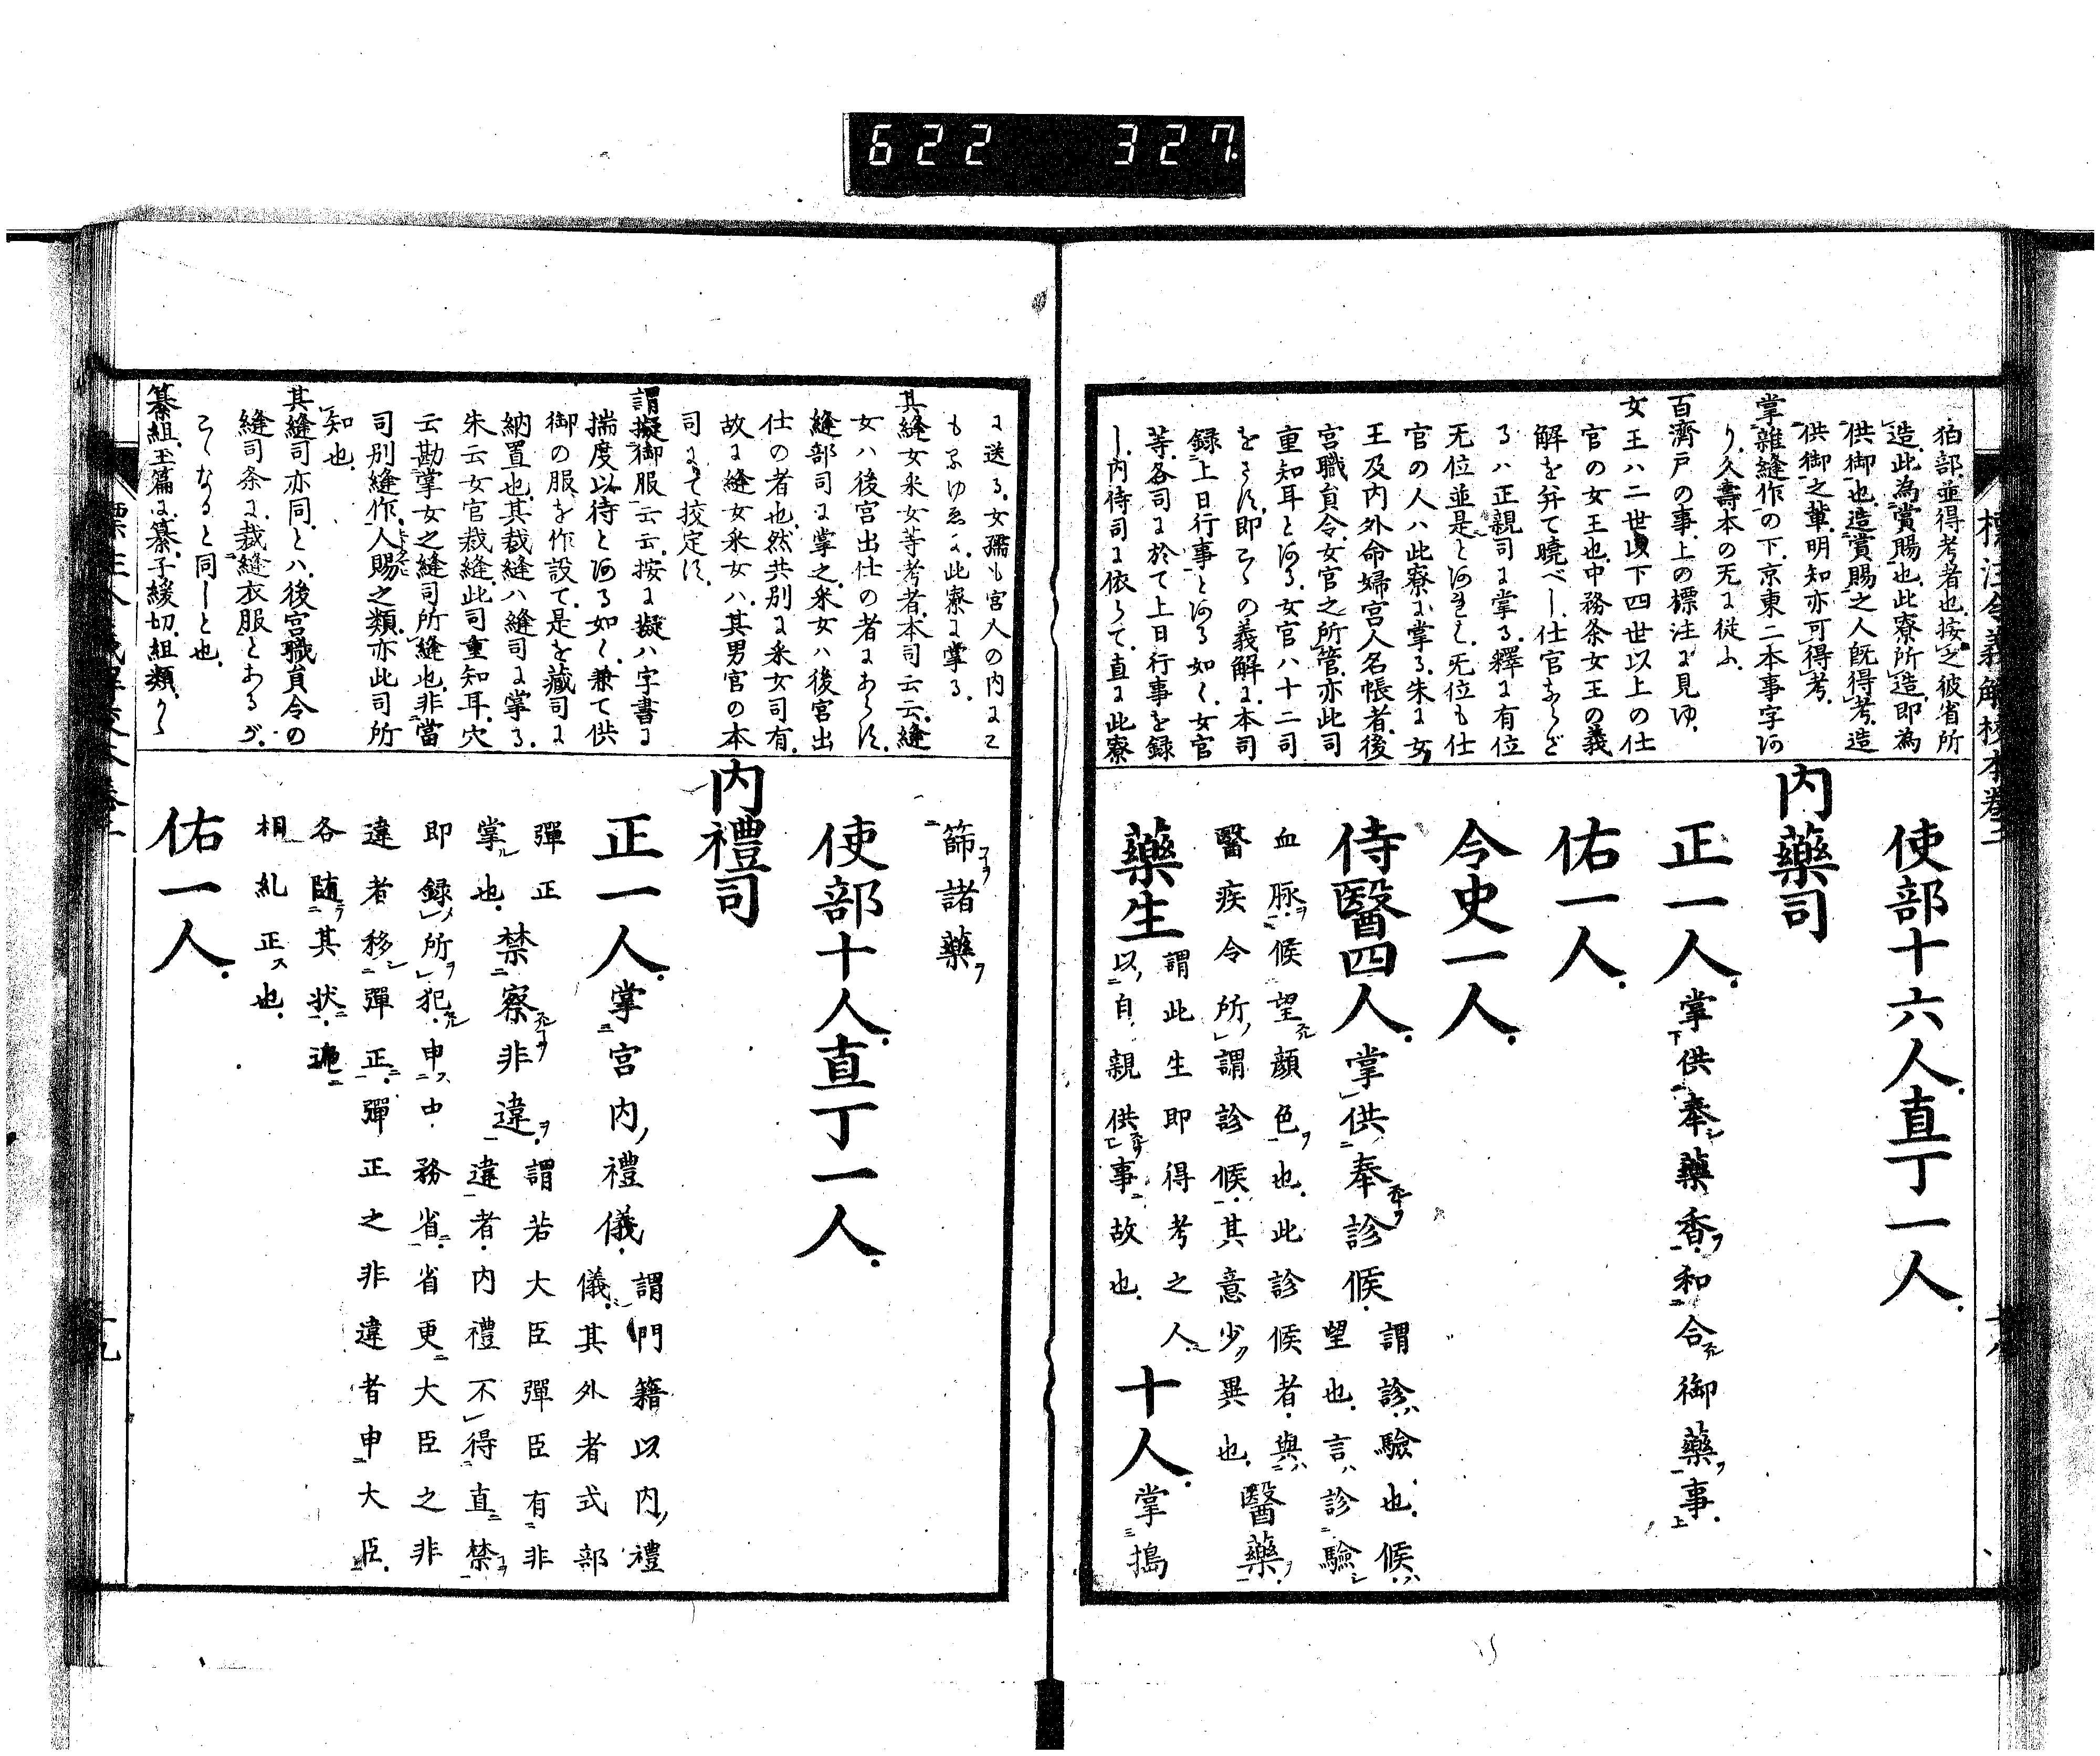 622 327
狛部並得考者也、按之彼省所
造、此為賞賜也、此寮所造、即為
供御也、造賞賜之人既得考、造
供御之輩、明知亦可得考、
掌雜縫作の下、京東二本事字あ
り、久壽本の无に從ふ、
百濟戸の事、上の標注に見ゆ、
女王ハ二世以下四世以上の仕
官の女王也、中務条女王の義
解を并て曉べし、仕官ならざ
るハ正親司に掌る、釋に有位
无位並是とあれど、无位も仕
官の人ハ此寮に掌る、朱に女
王及内外命婦宮人名帳者、後
宮職員令、女官之所管、亦此司
重知耳とある、女官ハ十二司
をさす、即こゝの義解に、本司
録上日行事とある如く、女官
等、各司に於て上日行事を録
し、内侍司に依りて、直に此寮
使部十六人直丁一人
内藥司
正一人掌供奉藥香和合御藥事
佑一人
令史一人
侍醫四人掌供奉診候謂診驗也候
望也言診驗
血脉候望顏色也此診候者與
醫疾令所謂診候其意少異也醫藥
藥生謂此生即得考之人
以自親供事故也十人掌搗
に送る、女孺も宮人の内にて
もあるゆゑに、此寮に掌る、
其縫女采女等考者、本司云云、縫
女ハ後宮出仕の者にあらず、
縫部司に掌之、采女ハ後宮出
仕の者也、然共別に采女司有、
故に縫女采女ハ、其男官の本
司にて挍定す、
謂擬御服云云、按に擬ハ字書に
揣度以待とある如く、兼て供
御の服を作設て、是を藏司に
納置也、其裁縫ハ縫司に掌る、
朱云女官裁縫、此司重知耳、穴
云勘掌女之縫司所縫也、非當
司別縫作、人賜之類、亦此司所
知也、
其縫司亦同、とハ、後宮職員令の
縫司条に、裁縫衣服とあるが、
こゝなると同しと也、
纂組、玉篇に、纂、子緩切、組類、
篩諸藥
使部十人直丁一人
内禮司
正一人掌宮内禮儀謂門籍以内禮
儀其外者式部
彈正
掌也禁察非違謂若大臣彈臣有非
違者内禮不得直禁
即録所犯申中務省省更大臣之非
違者移彈正彈正之非違者申大臣
各隨其状遞
相糺正也
佑一人